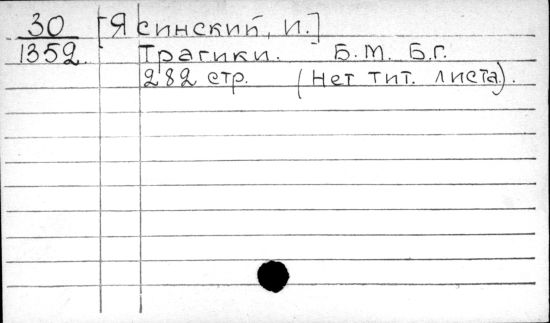 30 [Ясинский, И.]
1352. Трагики. Б.М. Б.г.
282 стр. (Нет тит. листа).